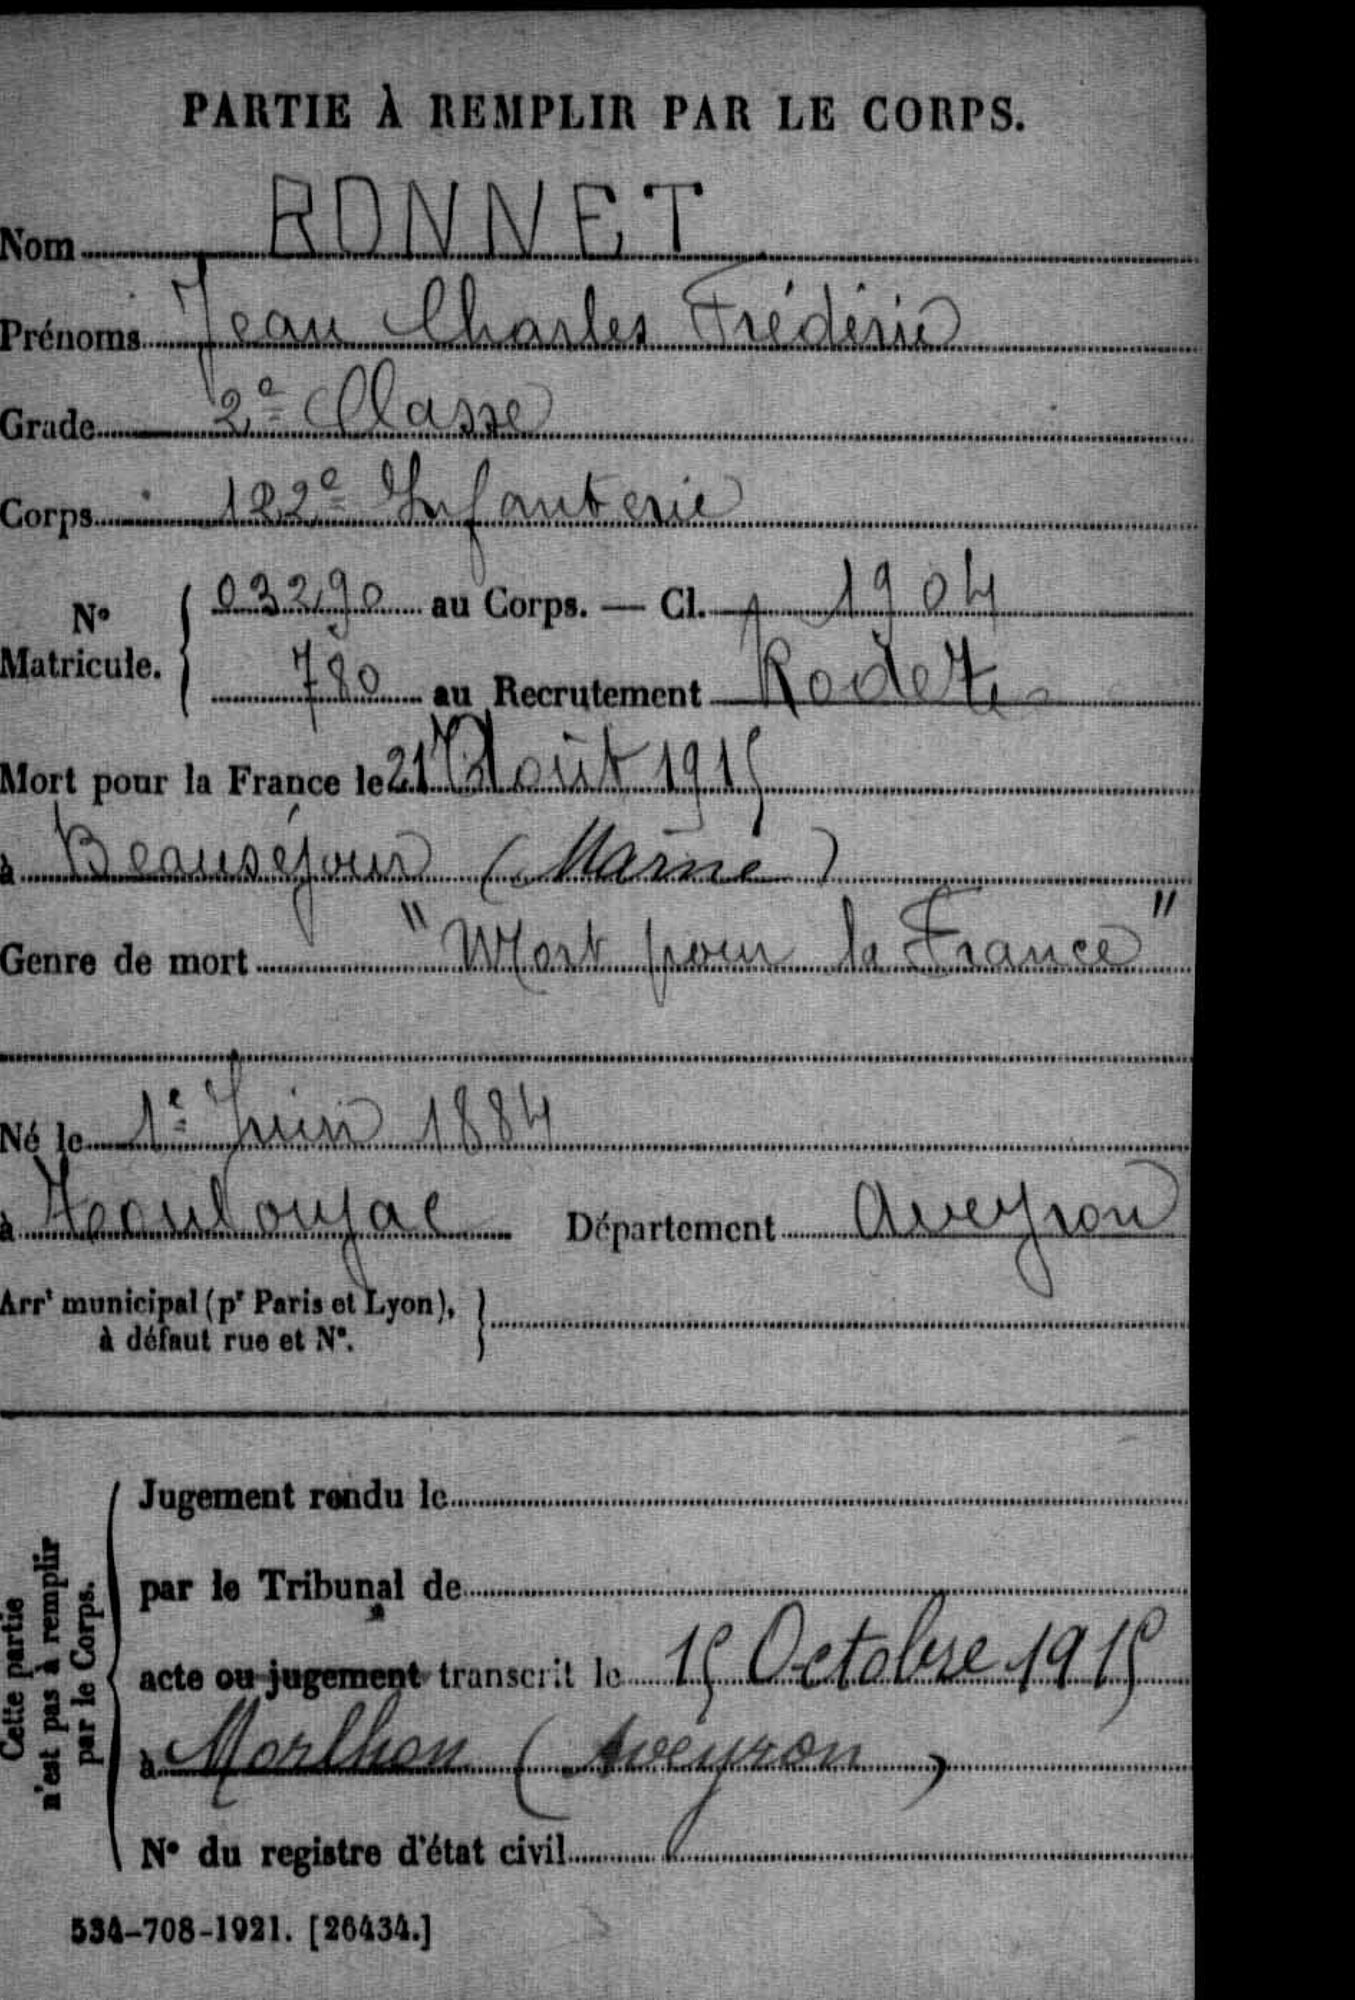 PARTIE À REMPLIR PAR LE CORPS.
Nom BONNET
Prénoms Jean Charles Frédéric
Grade 2e Classe
Corps 122e Infanterie
No Matricule. { 03290 au Corps. — Cl. 1904
780 au Recrutement Rodez
Mort pour la France le 21 Août 1915
à Beauséjour (Marne)
Genre de mort "Mort pour la France"
Né le 1e Juin 1884
à Département Aveyron
Arrt municipal (pr Paris et Lyon), à défaut rue et No. }
Cette partie n'est pas à remplir par le Corps.
Jugement rendu le
par le Tribunal de
acte ou jugement transcrit le 15 Octobre 1915
à Morlhon (Aveyron)
No du registre d'état civil
534-708-1921. [26434.]